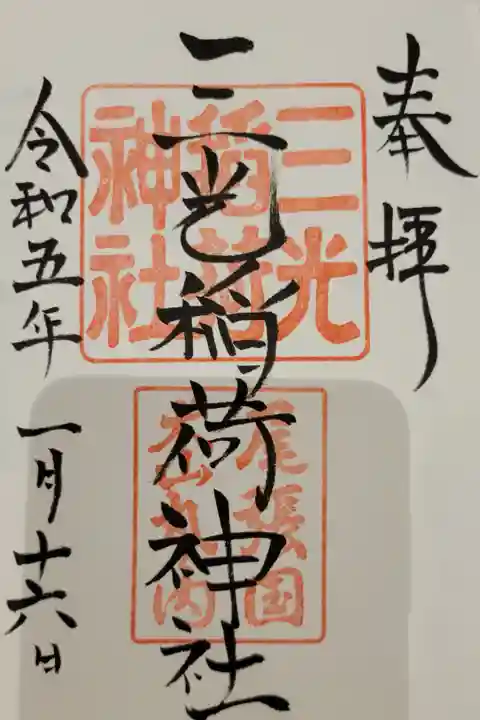 奉拝
三光稲荷神社
令和五年一月十六日
三光
稲荷
神社
尾張国
犬山丸内